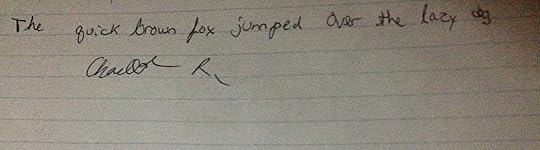 The quick brown fox jumped over the lazy dog
R.